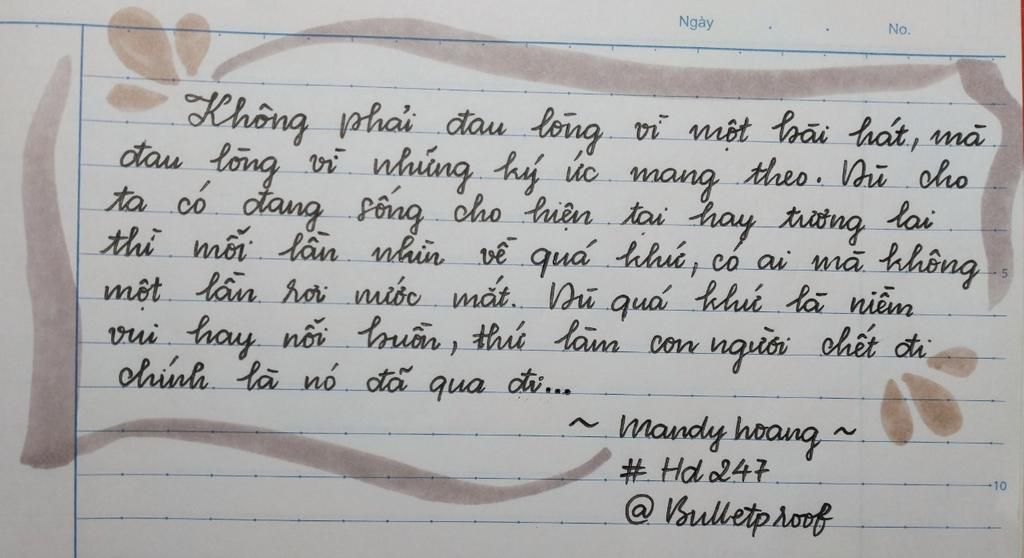 Ngày
No.
Không phải đau lòng vì một bài hát, mà
đau lòng vì những ký ức mang theo. Dù cho
ta có đang sống cho hiện tại hay tương lai
thì mỗi lần nhìn về quá khứ, có ai mà không
5
một lần rơi nước mắt. Dù quá khứ là niềm
vui hay nỗi buồn, thứ làm con người chết đi
chính là nó đã qua đi...
~ Mandy hoang ~
# Hd247
10
@ Bulletproof